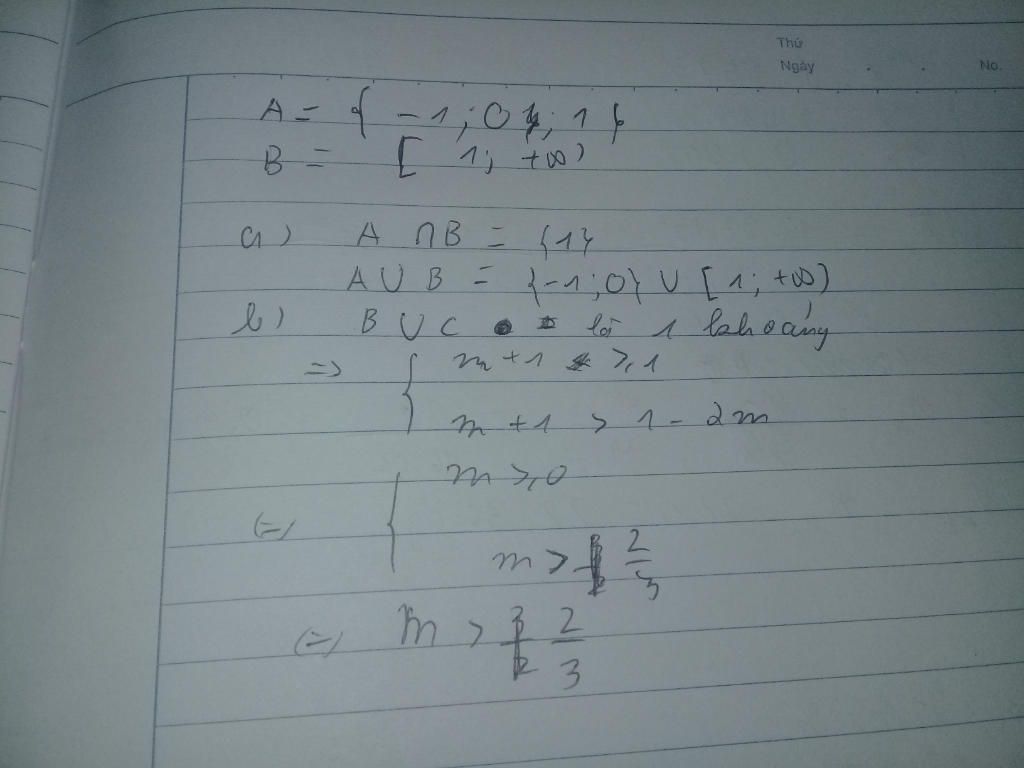 Thứ
Ngày . . No.
A = { -1 ; 0 ; 1 }
B = [ 1 ; +∞)
a) A ∩ B = {1}
A ∪ B = {-1 ; 0} ∪ [ 1 ; +∞)
b) B ∪ C là 1 khoảng
=> { m + 1 ≥ 1
m + 1 > 1 - 2m
(=) { m ≥ 0
m > 2/3
(=) m > 2/3